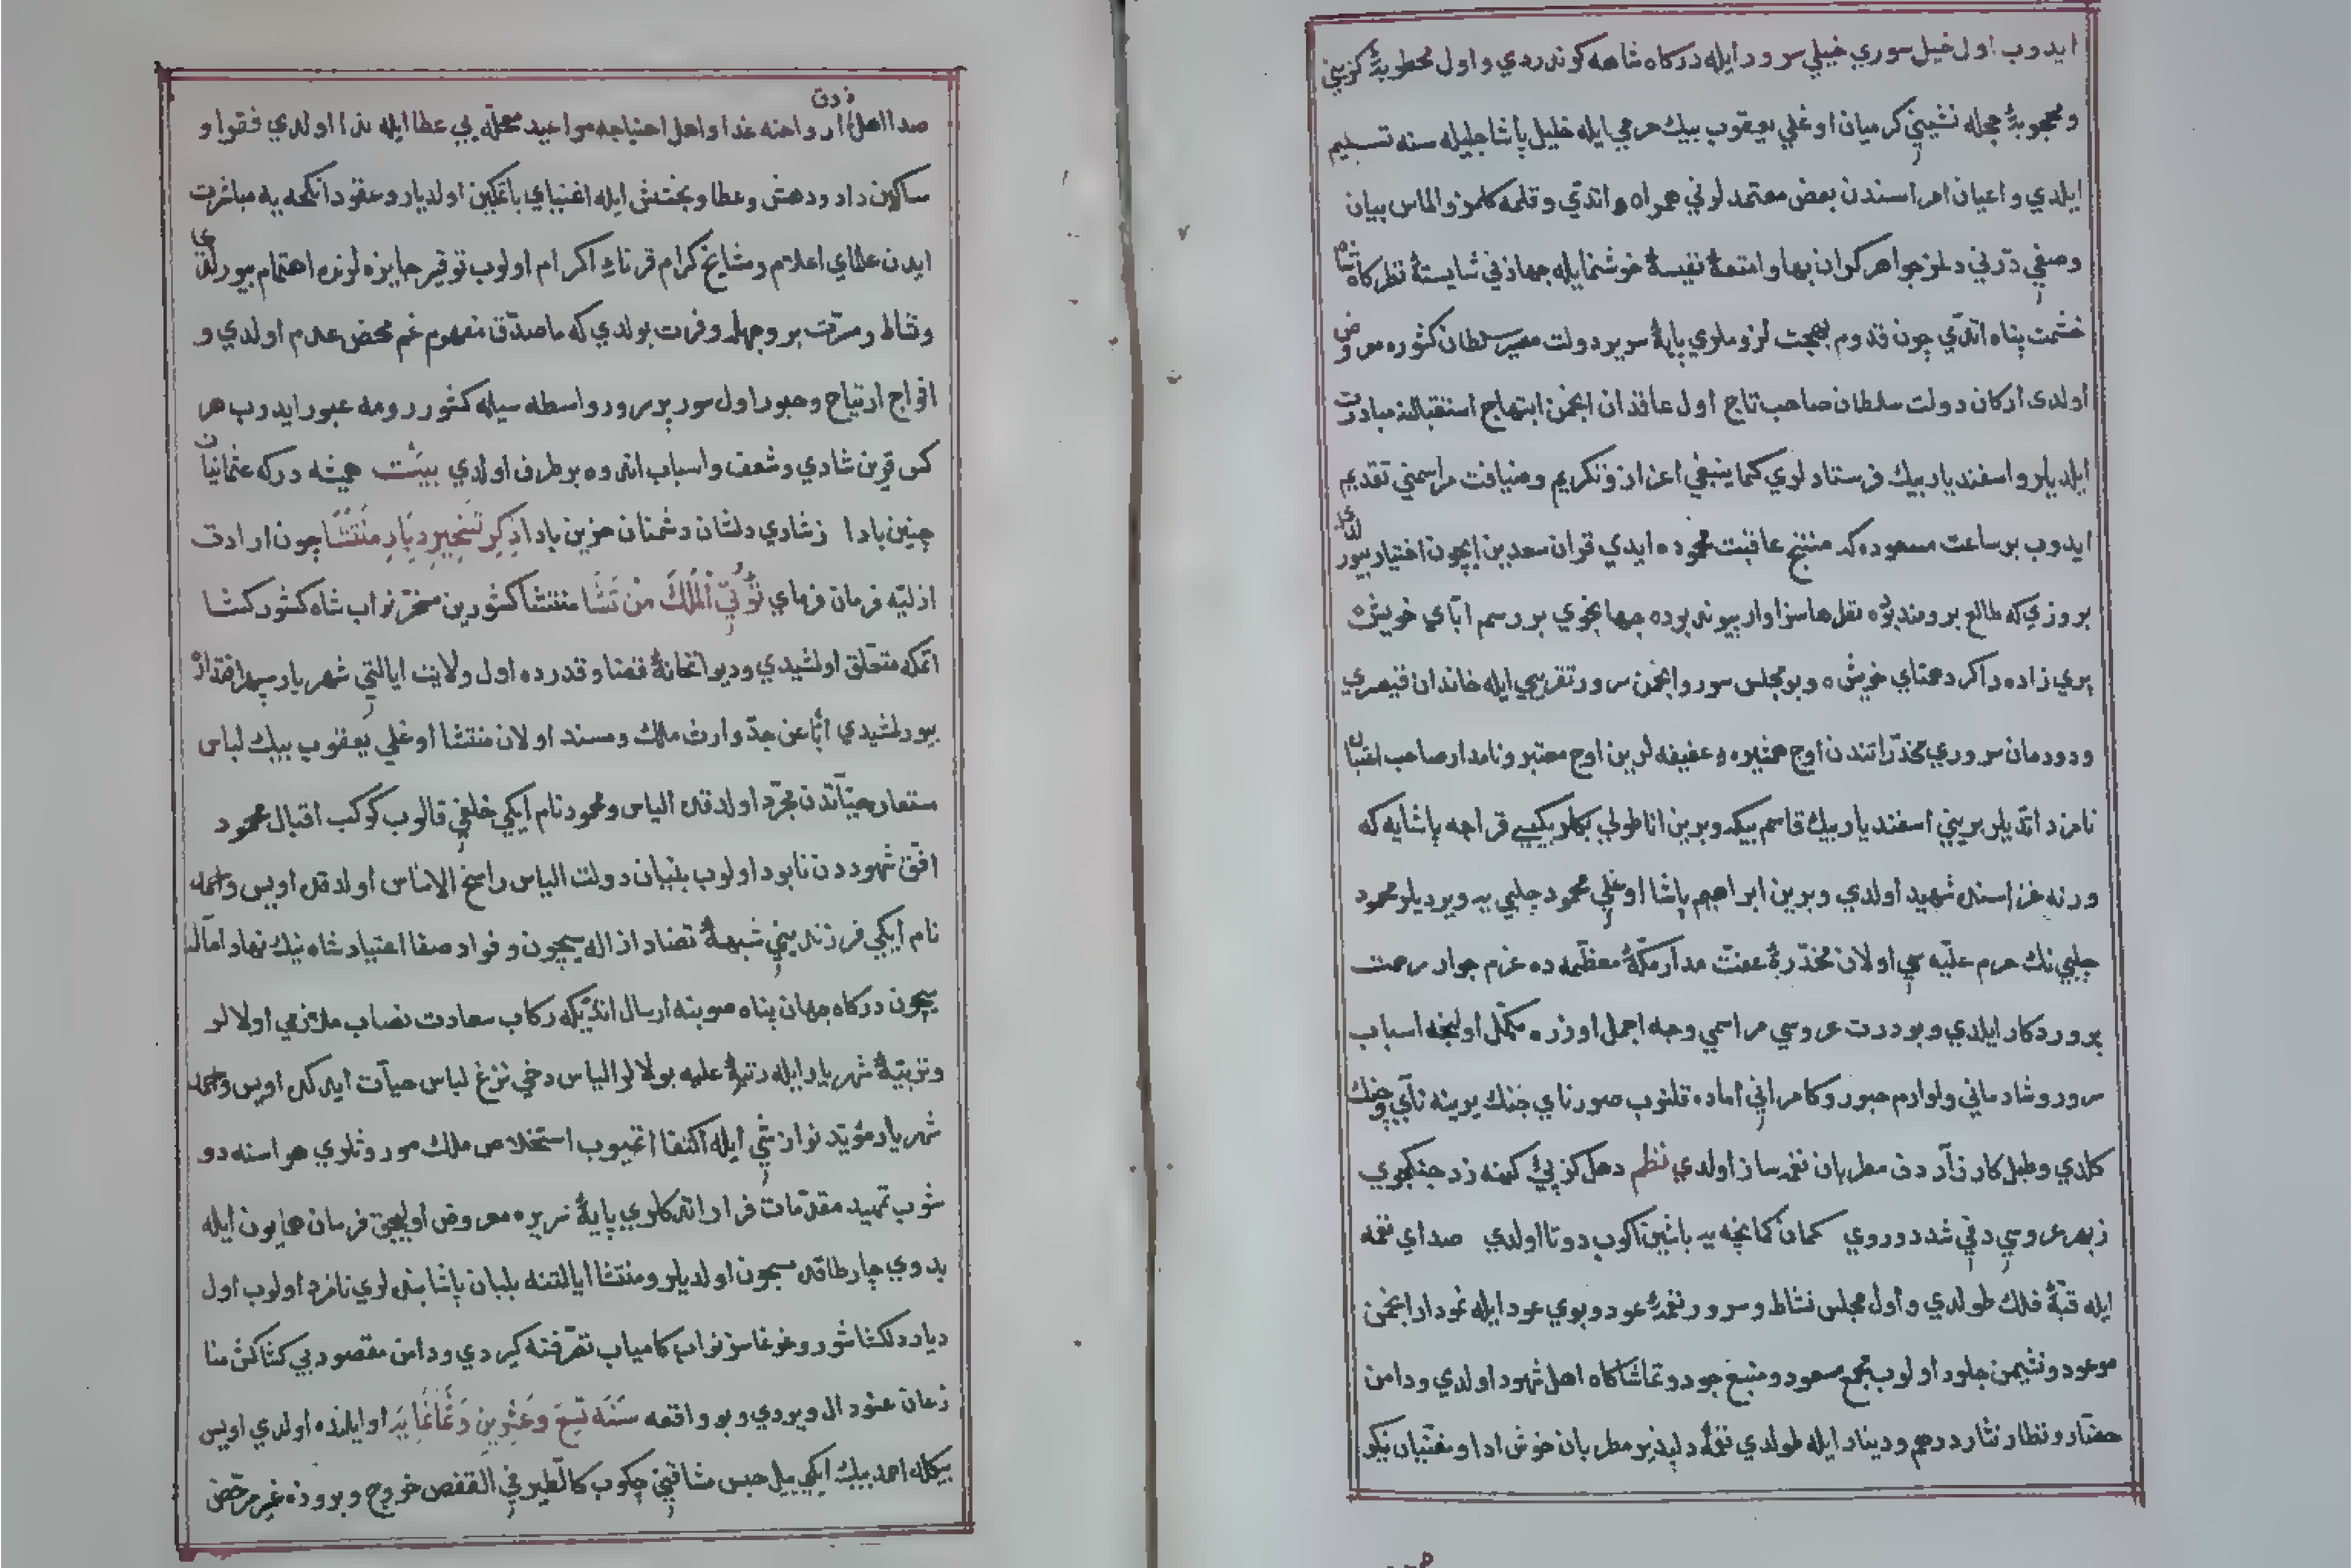 ايدوب اول خيل سوري خيلي سرور ايله دركاه شاهه كوندردي و اول مخطوبهٔ كزيني
و محجوبهٔ حجله نشيني كرميان اوغلي يعقوب بيك حرمي ايله خليل پاشا جليله سنه تسليم
ايلدي و اعيان امراسندن بعض معتمدلرني همراه اتدي و قلمه كلمز و الماس بيان
وصفي درّني دلمز جواهر كران بها و امتعهٔ نفيسهٔ خوشنما ايله جهازني شايستهٔ نظركاه شاه
حشمت پناه اتدي چون قدوم بهجت لزوملري پايهٔ سرير دولت مصير سلطان كشوره معروض
اولدى اركان دولت سلطان صاحب تاج اول عاقدان انجمن ابتهاج استقبالنه مبادرت
ايلديلر و اسفنديار بيك فرستاده لري كما ينبغي اعزاز و تكريم و ضيافت مراسمني تقديم
ايدوب بر ساعت مسعوده كه منتج عاقبت محموده ايدي قران سعدين ايچون اختيار بيورلدي
بروزي كه طالع برومند بوده نظرها سزاوار پيوند بوده جهانجوي بر رسم آباي خويش
پري زاده را كرد همتاي خويش و بو مجلس سور و انجمن سرور تقريبي ايله خاندان قيصري
و دودمان سروري مخدّراتندن اوج همشيره و عفيفه لرين اوج معتبر و نامدار صاحب اقبال
نامزد اتديلر بريني اسفنديار بيك قاسم بيكه و برين اناطولي بكلربيكيسي قراجه پاشايه كه
ورنه غزاسنده شهيد اولدي و برين ابراهيم پاشا اوغلي محمود چلبي يه ويرديلر محمود
چلبي نك حرم عليه سي اولان مخدّرهٔ عفت مدار مكّهٔ معظّمه ده عزم جوار رحمت
پروردكار ايلدي و بو درت عروسي مراسمي وجه اجمل اوزره مكمّل اولنجه اسباب
سرور و شادماني و لوازم حبور و كامراني آماده قلنوب صورناي جنك يرينه ناي و چنك
كلدي و طبل كارزاردن مطربان نغمه ساز اولدي نظم دهل كز پئ كينه زد جنكجوي
زبهر عروسي دفي شد دوروي كمان كمانچه يه باشين اكوب دوتا اولدي صداي نغمه
ايله قبهٔ فلك طولدي و اول مجلس نشاط و سرور نغمهٔ عود و بوي عود ايله نمودار انجمن
موعود و نشيمن جلود اولوب مجمع سعود و منبع جود و تماشاكاه اهل شهود اولدي و دامن
حضّار و نظار نثار درهم و دينار ايله طولدي نغمهٔ دلپذير مطربان خوش ادا و مغنّيان نيكو
صدا اهل ارواحنه غدا و اهل احتياجه مواعيد معجّله بي عطا ايله ندا اولدي فقرا و
ساكين داد و دهش و عطا و بخشش ايله اغنياي باتمكين اولديلر و عقود انكحه يه مباشرت
ايدن علماي اعلام و مشايخ كرام قرناك اكرام اولوب توقير جايزه لرنده اهتمام بيورلدي
و نشاط و مسرّت بر وجهله وفرت بولدي كه ماصدق مفهوم غم محض عدم اولدي و
افواج ارتياح و حبور اول سور پر سرور واسطه سيله كشور رومه عبور ايدوب هر
كس قرين شادي و شعف و اسباب اندوه برطرف اولدي بيت هميشه دركه عثمانيان
چنين بادا زشادي دلشان دشمنان حزين بادا ذكر تسخير ديار منتشا چون ارادت
ازليّه فرمان فرماي تؤتي الملك من تشا منتشا كشورين مسخّر نواب شاه كشوركشا
اتمكه متعلق اولشيدي و ديوانخانهٔ قضا و قدرده اول ولايت ايالتي شهريار سپهر اقتداره
بيورلشيدي اباً عن جدّ وارث ملك و مسند اولان منتشا اوغلي يعقوب بيك لباس
مستعار حياتدن مجرّد اولدقده الياس و محمود نام ايكي خلفي قالوب كوكب اقبال محمود
افق شهوددن نابود اولوب بنيان دولت الياس راسخ الاساس اولدقده اويس و احمد
نام ايكي فرزنديني شبههٔ تضاد ازاله سيچون و فواد صفا اعتياد شاه نيك نهاد اماله
سيچون دركاه جهان پناه صوبنه ارسال اتديكه ركاب سعادت نصاب ملازمي اولالر
و تربيهٔ شهريار ايله رتبهٔ عليه بولالر الياس دخي نزع لباس حيات ايدكده اويس و احمد
شهريار مؤيد نوازشي ايله اكتفا اتميوب استخلاص ملك موروثلري هواسنه دو
شوب تمهيد مقدّمات فرار اتدكلري پايهٔ سريره معروض اوليجق فرمان همايون ايله
بدوي چارطاقده مسجون اولديلر و منتشا ايالتنه بلبان پاشا نامزد اولوب اول
ديار دلكشا شور و غوغاسز نواب كامياب تصرّفنه كيردي و دامن مقصود بي كشاكش منا
زعان عنود ال ويردي و بو واقعه سنه تسع و عشرين و ثمانمايه اوايلنده اولدي اويس
بيكله احمد بيك ايكي ييل حبس مشاقيني چكوب كالطير في القفص خروج و بروزه غير مرخّص